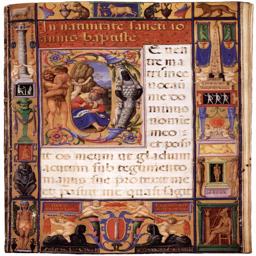 In natiuitate sancti io
annis baptiste
DE uen
tre ma
tris mee
uocauit
me do
minus
nomine
meo: et
posu
it os meum ut gladium
acutum sub tegumento
manus sue protexit me
et posuit me quasi sagit